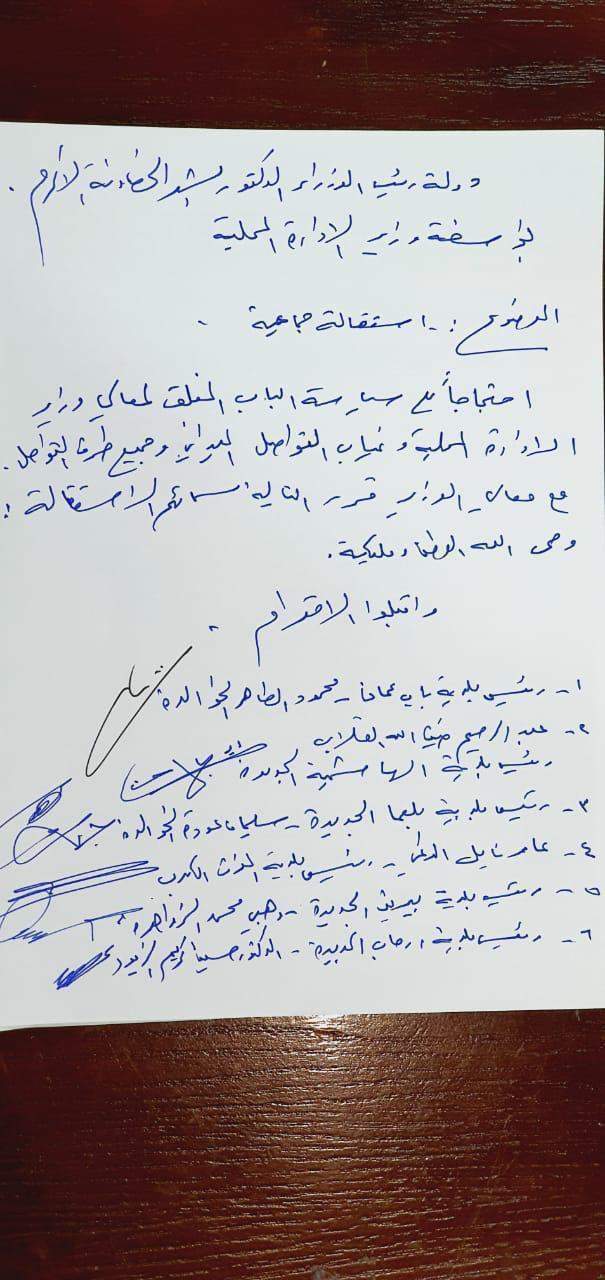 دولة رئيس الوزراء الدكتور بشر الخصاونة الأكرم .
بواسطة وزير الادارة المحلية
الموضوع :- استقالة جماعية .
احتجاجاً على سياسة الباب المغلق لمعالي وزير
الادارة المحلية وغياب التواصل الميداني وجميع طرق التواصل .
مع معالي الوزير قرر التالية اسمائهم الاستقالة :
وحمى الله الوطن ومليكه .
واقبلوا الاحترام .
١- رئيس بلدية باب عمان - محمود الطاهر الخوالدة
٢- عبد الرحيم ضيف الله القلاب
رئيس بلدية الهاشمية الجديدة
٣- رئيس بلدية بلعما الجديدة - سليمان عودة الخوالدة
٤- عامر نايل - رئيس بلدية
٥- رئيس بلدية بيرين الجديدة - وهبي محمد الزواهرة
٦- رئيس بلدية ارحاب الجديدة - الدكتور كريم الزيود